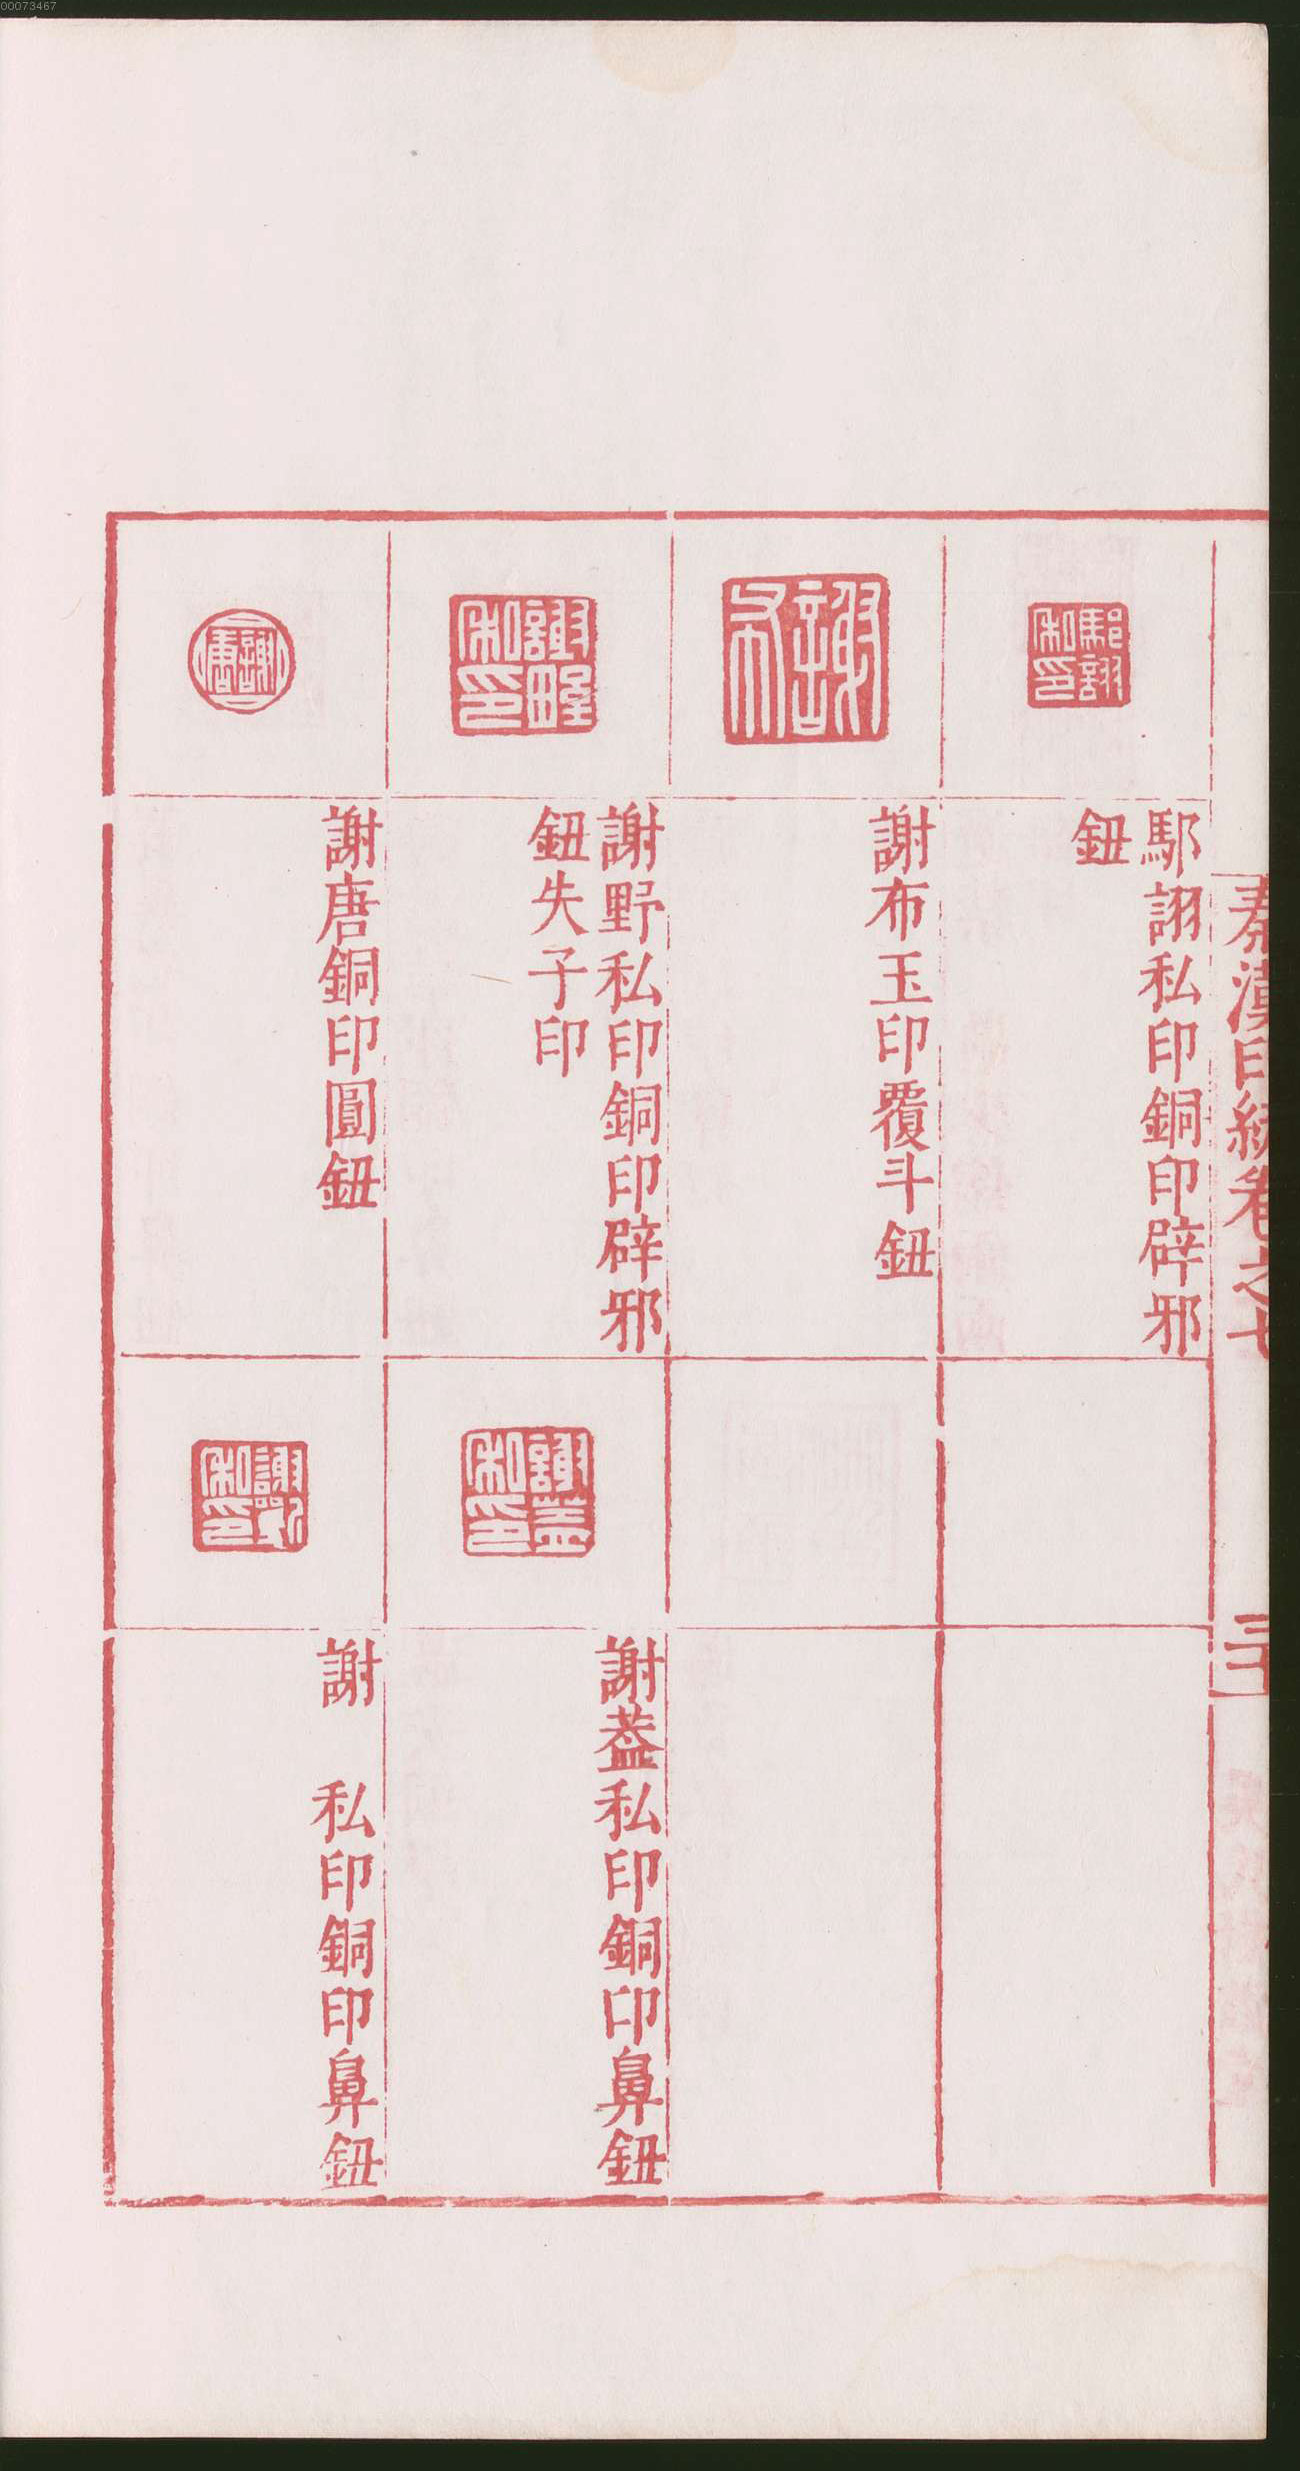 00073467
秦漢印統卷之七
三十
駬詡私印銅印辟邪
鈕
謝布玉印覆斗鈕
謝野私印銅印辟邪
鈕失子印
謝唐銅印圓鈕
謝葢私印銅印鼻鈕
謝　私印銅印鼻鈕